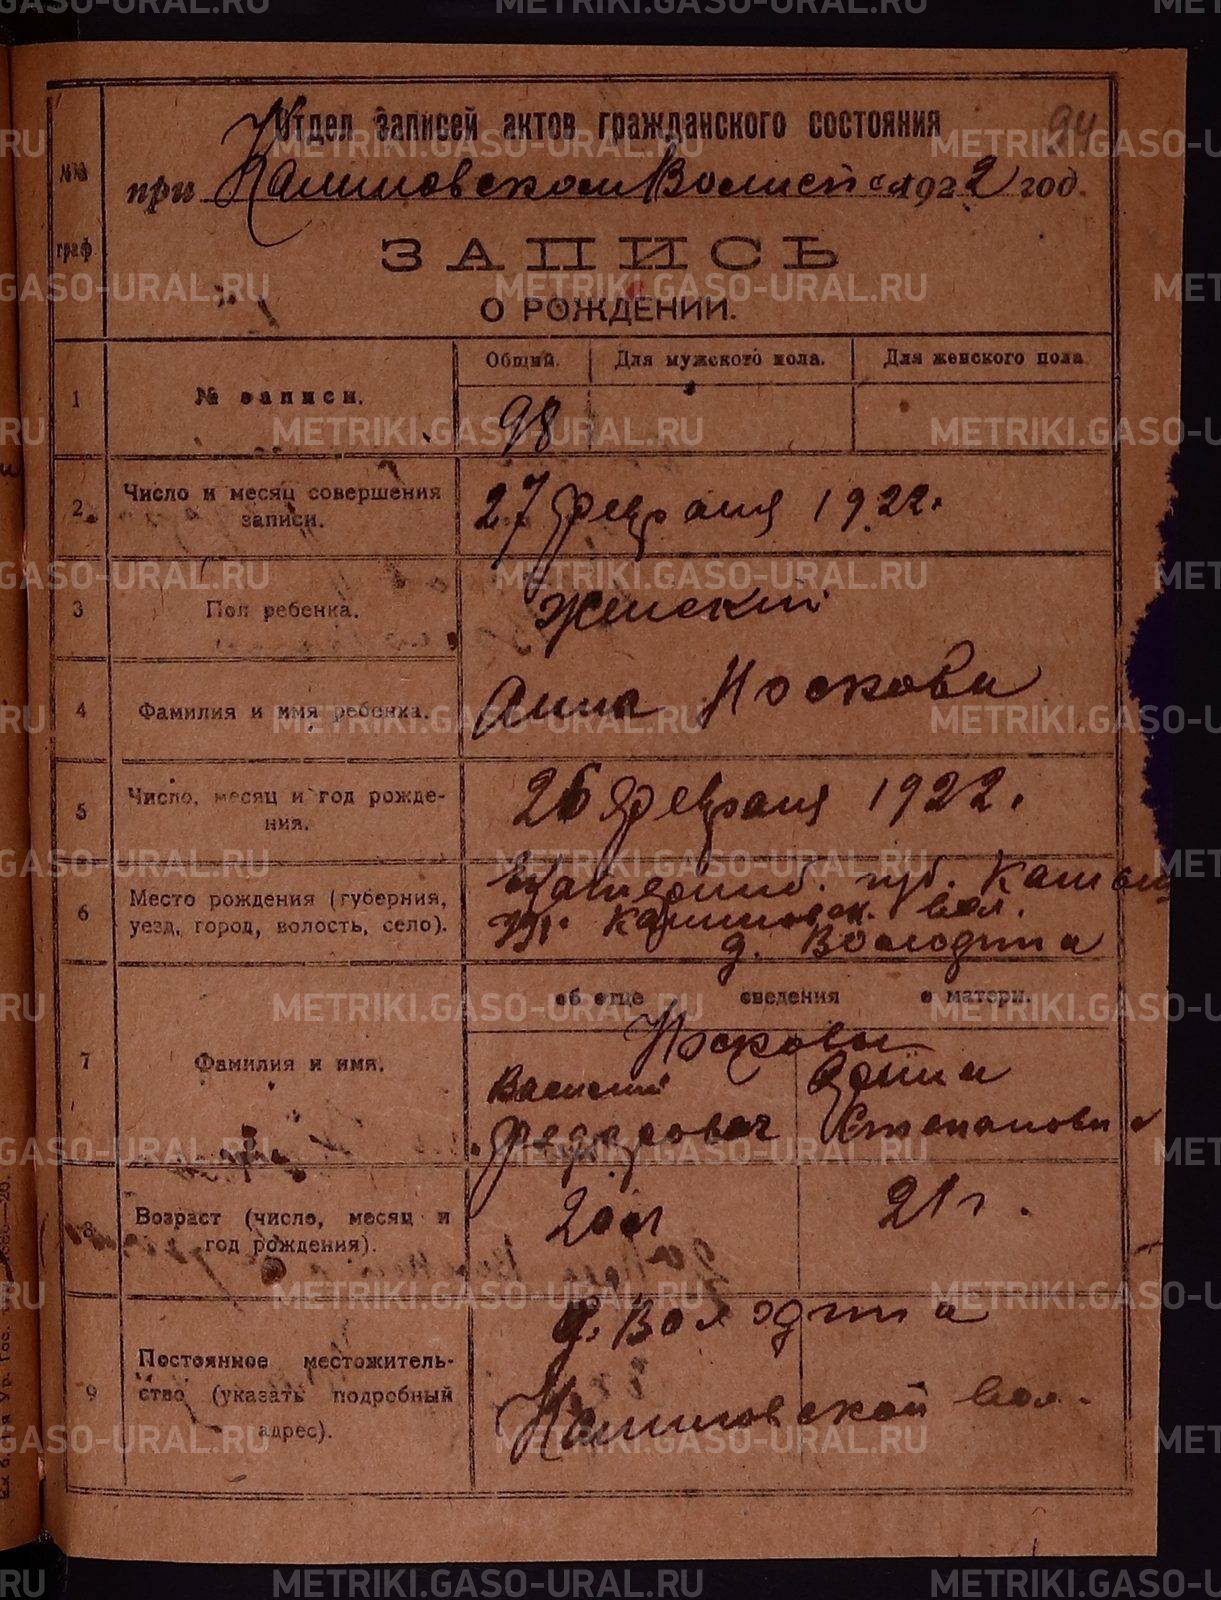 94
Отдел записей актов гражданского состояния
№№ граф.
при Калиновском Волисп с 1922 год.
ЗАПИСЬ
О РОЖДЕНИИ.
Общий. Для мужского пола. Для женского пола
1 № записи. 98
2 Число и месяц совершения записи. 27 февраля 1922 г.
3 Пол ребенка. Женский
4 Фамилия и имя ребенка. Анна Носкова
5 Число, месяц и год рождения. 26 февраля 1922.
6 Место рождения (губерния, уезд, город, волость, село). Екатеринб. губ. Камышл
у. Калиновск. вол.
д. Володина
об отце сведения о матери.
Носковы
7 Фамилия и имя. Василий
Федорович Степановна
8 Возраст (число, месяц и год рождения). 20 л 21 г.
9 Постоянное местожительство (указать подробный адрес). д. Володина
Калиновской вол.
METRIKI.GASO-URAL.RU